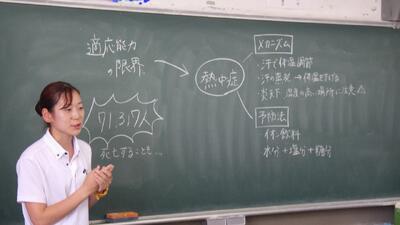 適応能力
の限界
71,317人
死亡することも…
熱中症
メカニズム
・汗で体温調節
・汗の蒸発→体温を下げる
・炎天下 温度の高い場所に注意
予防法
イオン飲料
水分+塩分+糖分